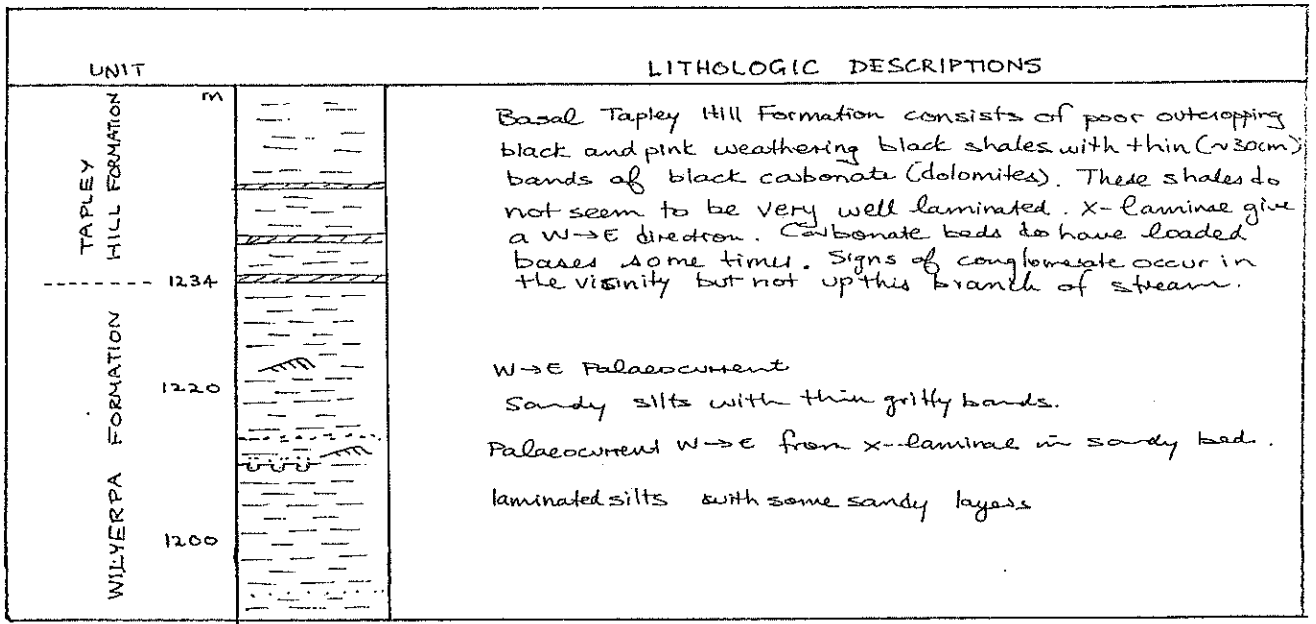 UNIT
LITHOLOGIC DESCRIPTIONS
m
TAPLEY
HILL FORMATION
Basal Tapley Hill Formation consists of poor outcropping
black and pink weathering black shales with thin (~30cm)
bands of black carbonate (dolomites). These shales do
not seem to be very well laminated. X-laminae give
a W→E direction. Carbonate beds do have loaded
bases some times. Signs of conglomerate occur in
the visinity but not up this branch of stream.
1234
WILYERPA FORMATION
W→E Palaeocurrent
1220
Sandy silts with thin gritty bands.
Palaeocurrent W→E from x-laminae in sandy bed.
laminated silts with some sandy layers
1200